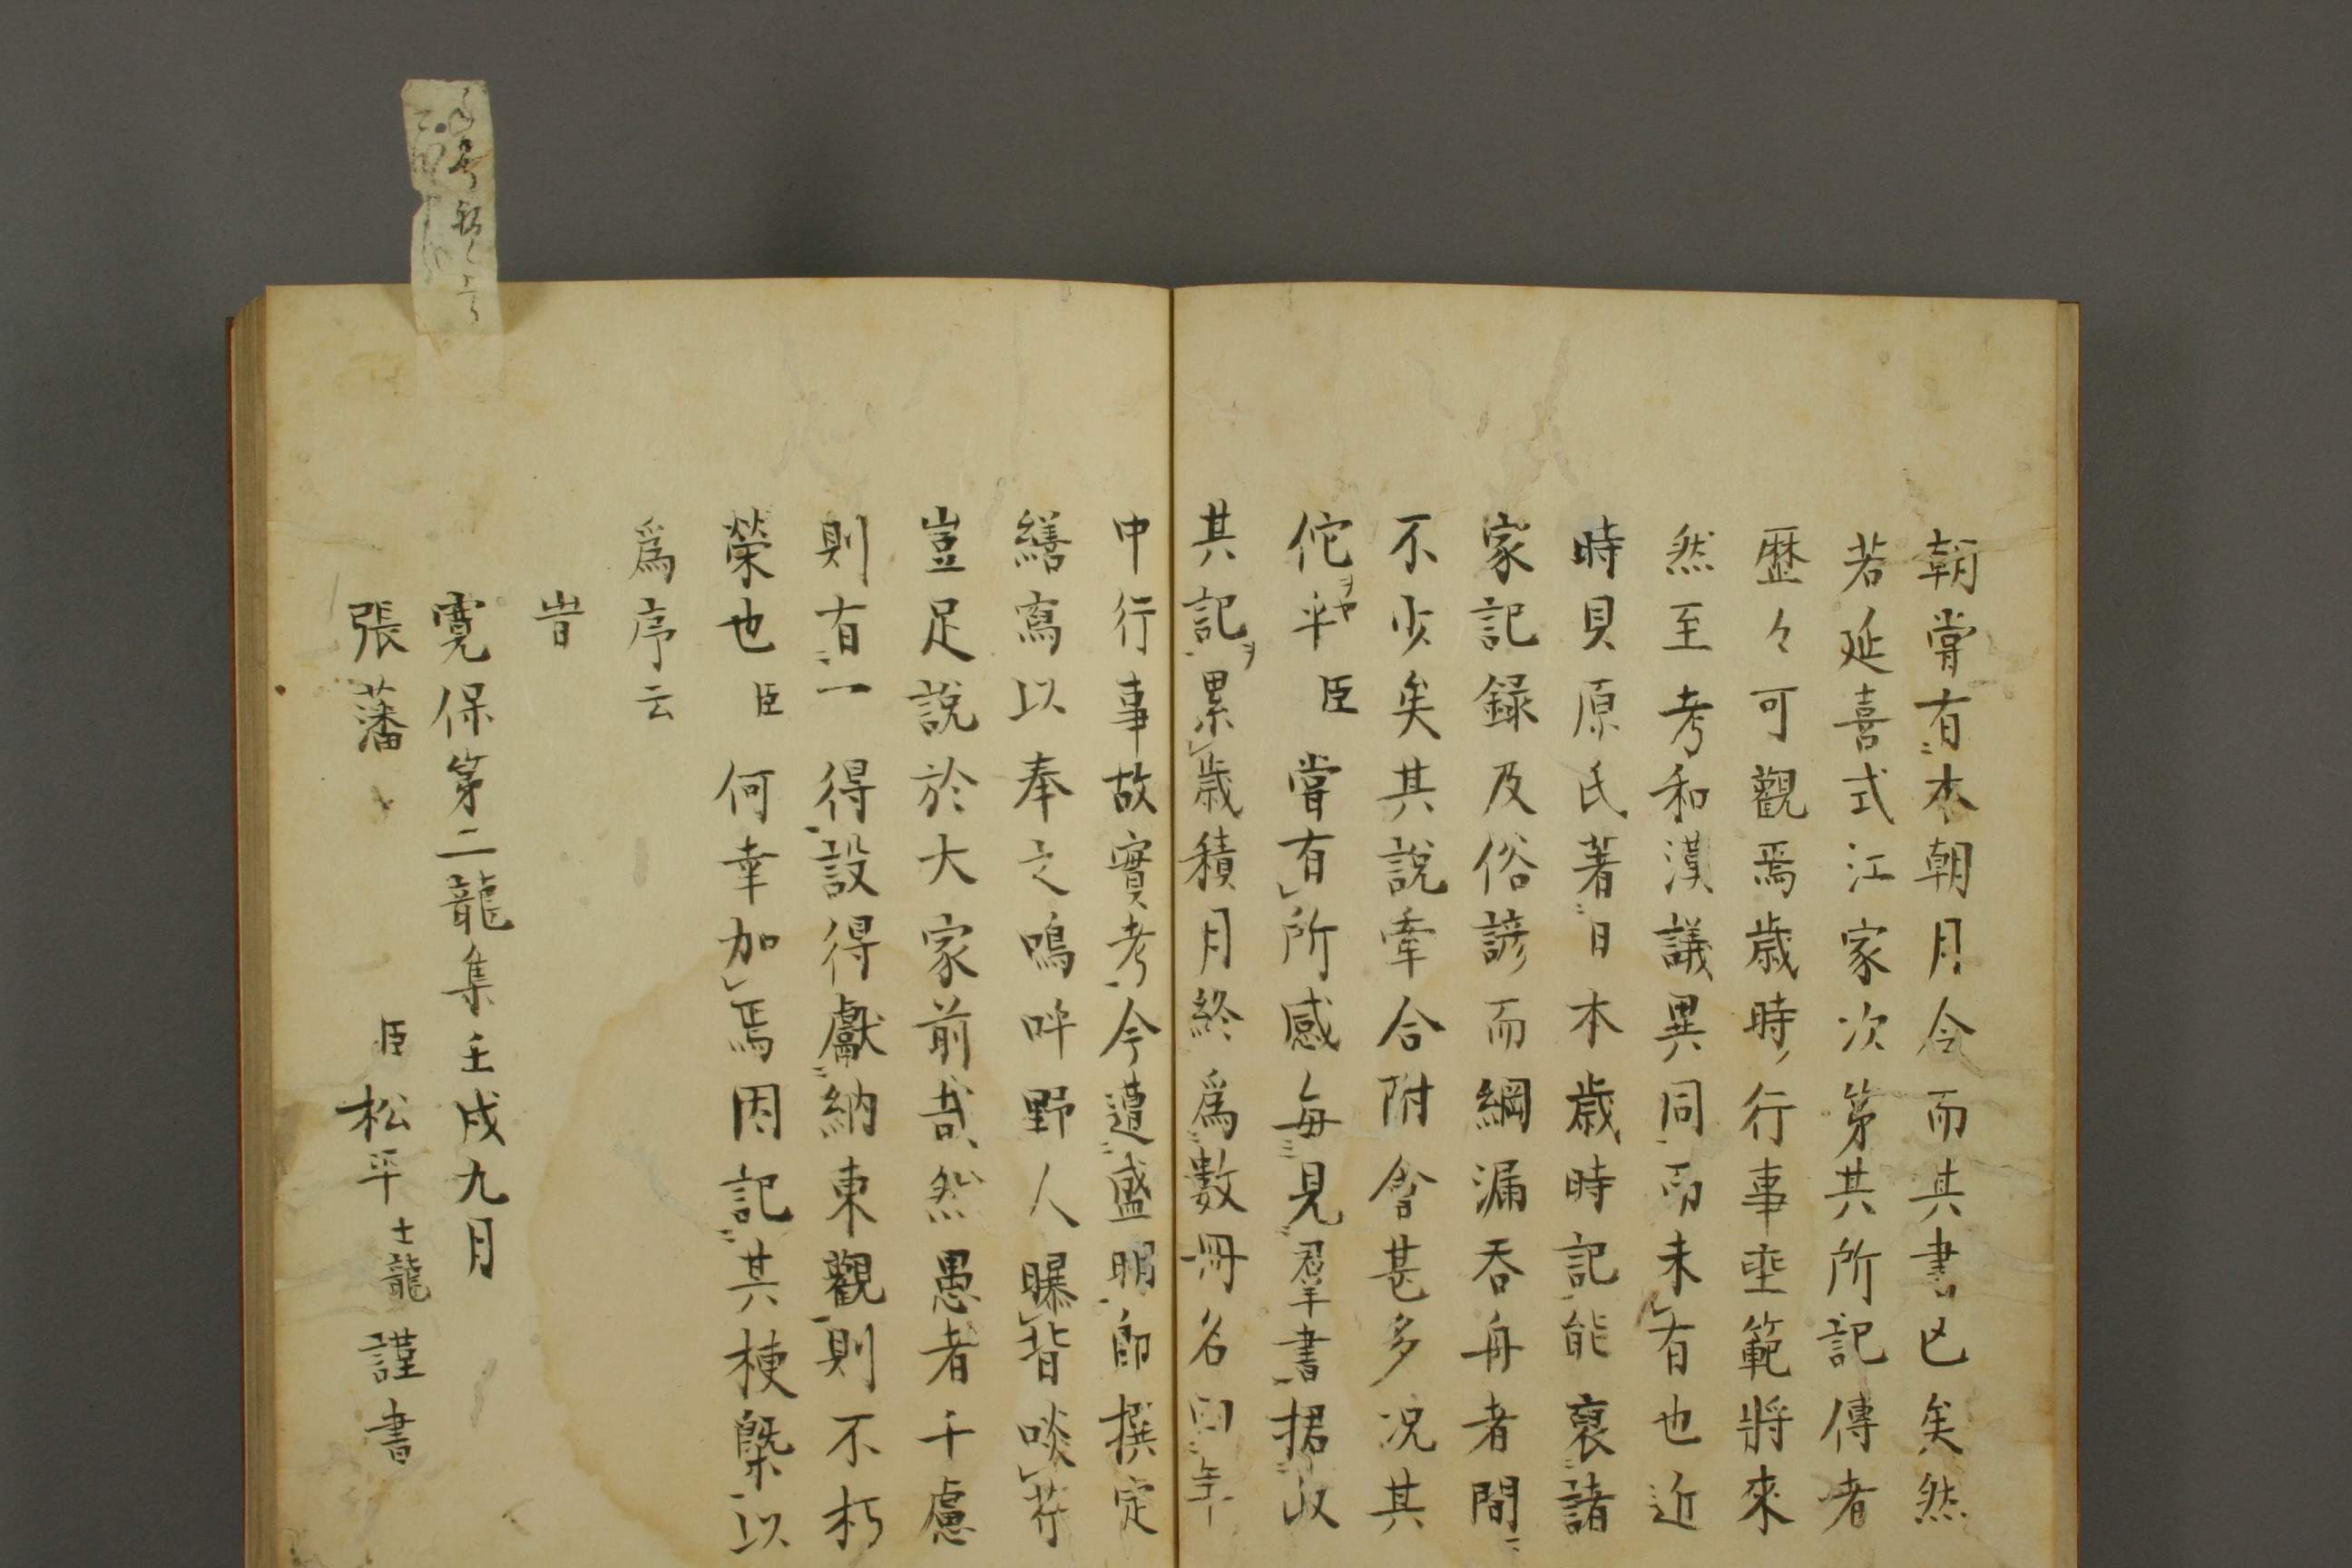 朝嘗有本朝月令而其書已矣然
若延喜式江家次第其所記傳者
歷々可觀焉歲時行事垂範將來
然至考和漢議異同而未有也近
時貝原氏著日本歲時記能裒諸
家記録及俗諺而綱漏吞舟者間
不少矣其說牽合附會甚多况其
佗乎臣嘗有所感每見羣書捃收
其記累歲積月終爲數冊名曰年
中行事故實考今遭盛明郎撰定
繕寫以奉之嗚呼野人曝背啖芹
豈足說於大家前哉然愚者千慮
則有一得設得獻納東觀則不朽
榮也臣何幸加焉因記其梗槩以
爲序云
旹
寛保第二龍集壬戌九月
張藩 臣松平士龍謹書